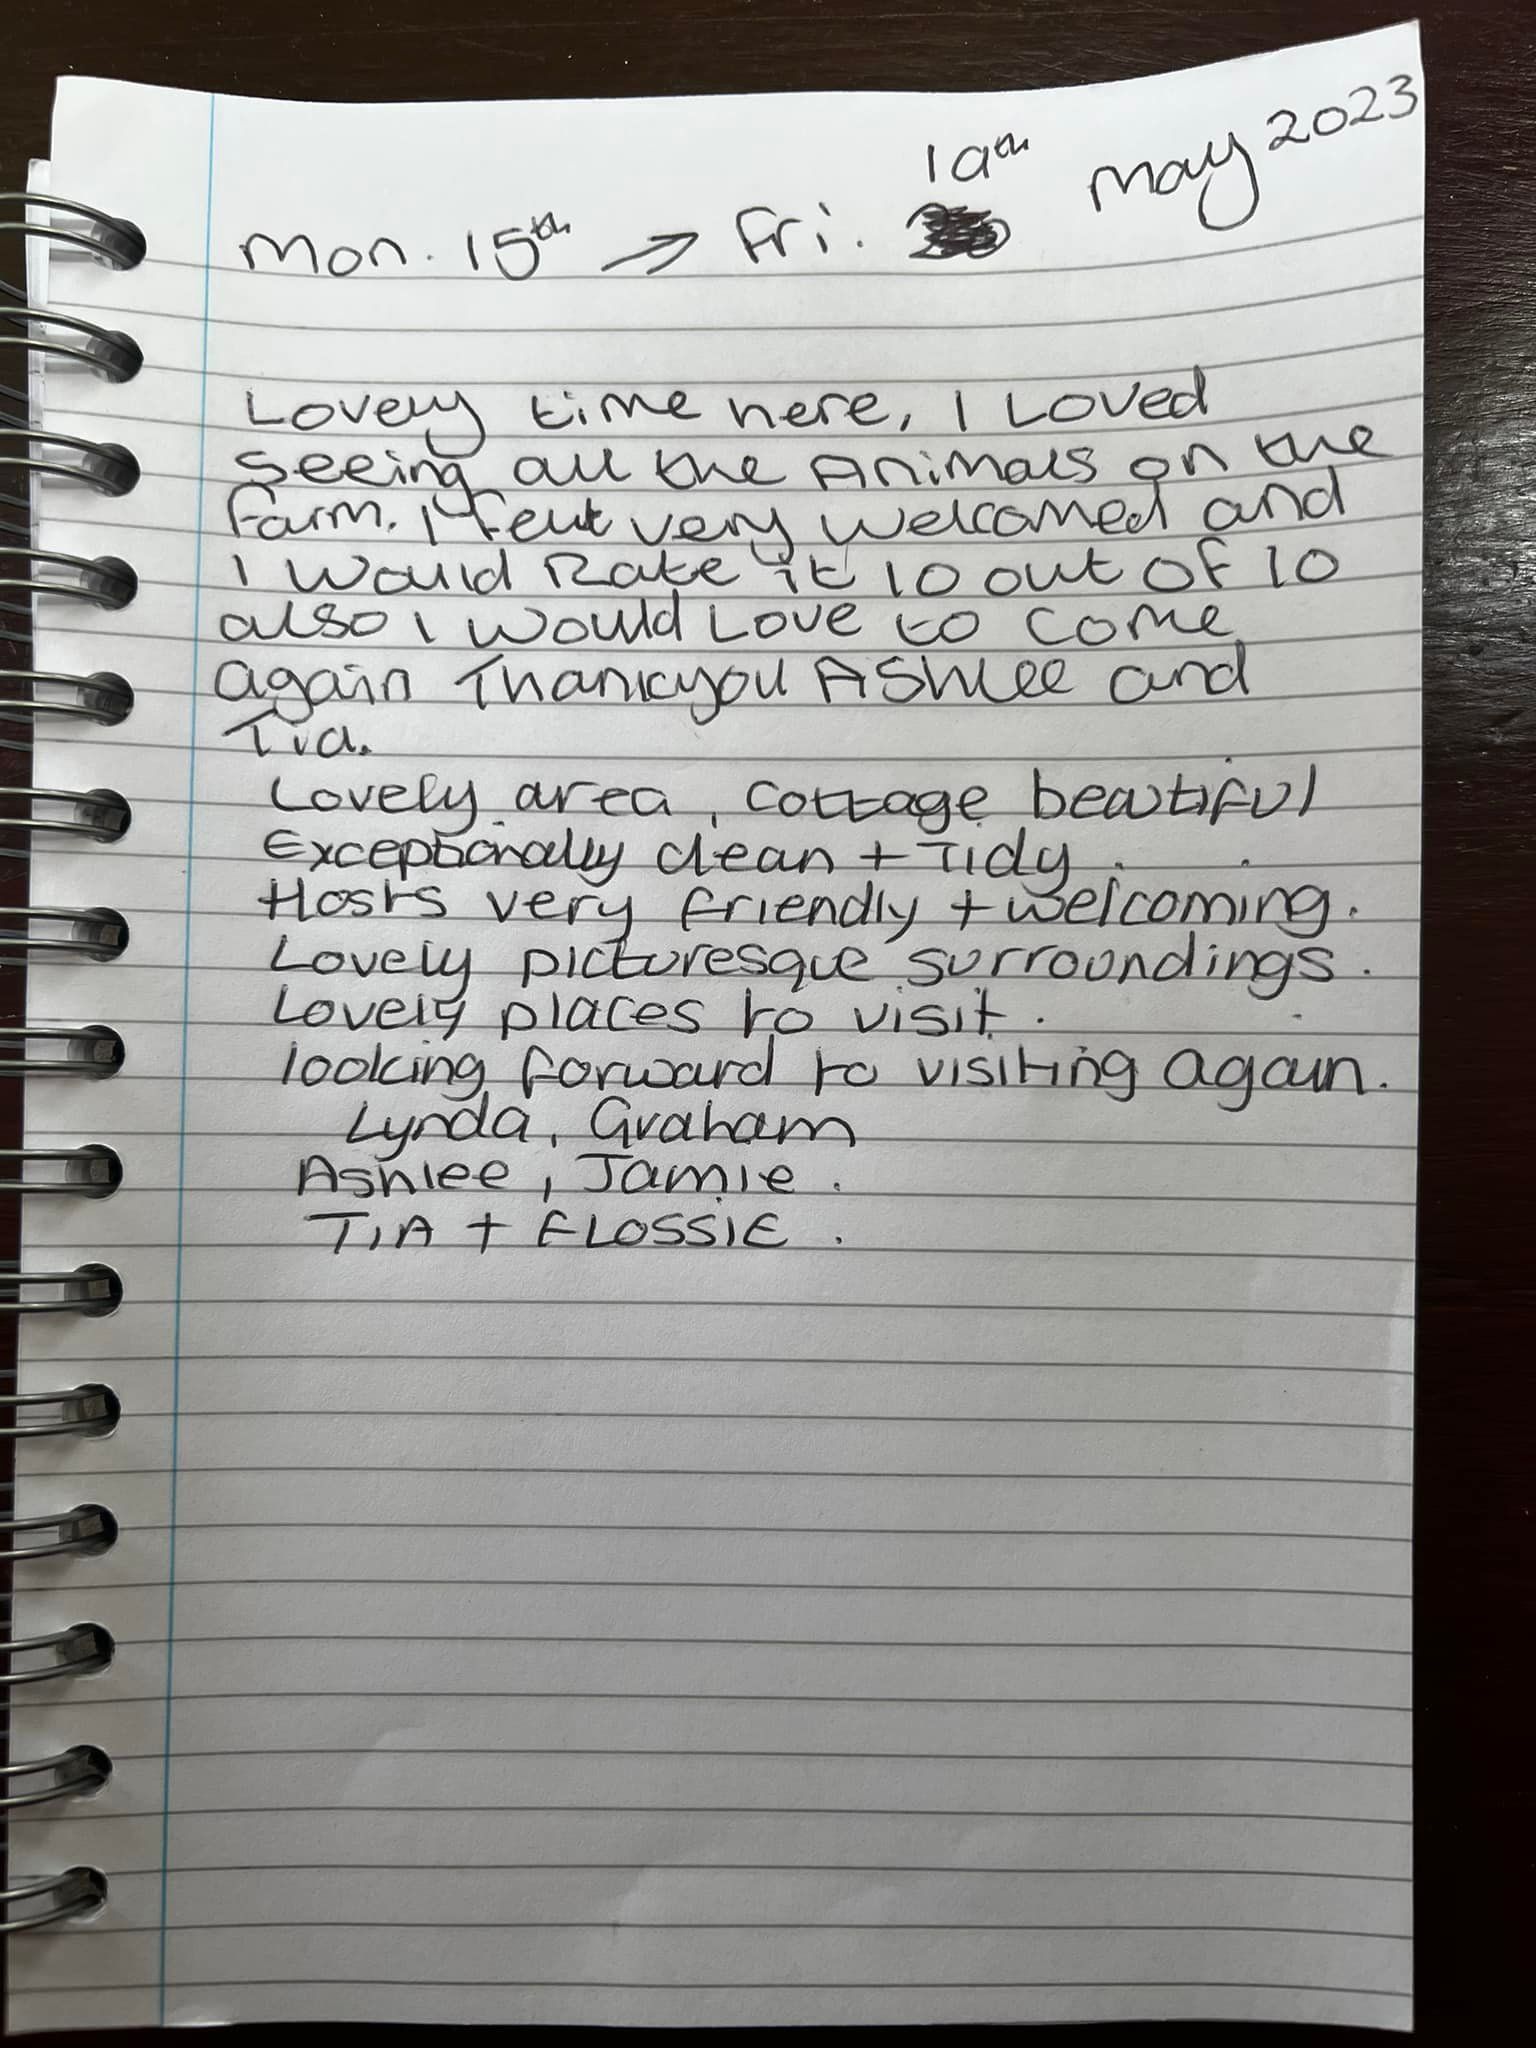 Mon. 15th → Fri. 19th May 2023
Lovely time here, I Loved
seeing all the Animals on the
farm. I felt very welcomed and
I would Rate it 10 out of 10
also I would Love to come
again Thankyou Ashlee and
Tia.
Lovely area, cottage beautiful
Exceptionally clean + Tidy.
Hosts very friendly + welcoming.
Lovely picturesque surroundings.
Lovely places to visit.
looking forward to visiting again.
Lynda, Graham
Ashlee, Jamie.
TIA + FLOSSIE.